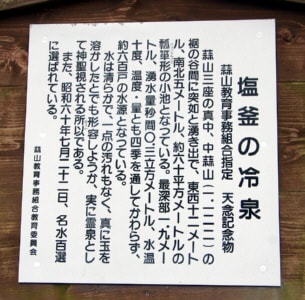 塩釜の冷泉
蒜山教育事務組合指定　天然記念物
蒜山三座の真中、中蒜山（一、一二二）の
裾の谷間に突如と湧き出で、東西十二メート
ル、南北五メートル、約六十平方メートルの
瓢箪形の小池となっている。最深部一九メー
トル、湧水量秒間〇・三立方メートル、水温
十度、温度・量とも四季を通してかわらず、
約六百戸の水源となっている。
水は清らかで、一点の汚れもなく、真に玉を
溶かしたとでも形容しようか、実に霊泉とし
て神聖視される所以である。
また、昭和六十年七月二十二日、名水百選
に選ばれている。
蒜山教育事務組合教育委員会